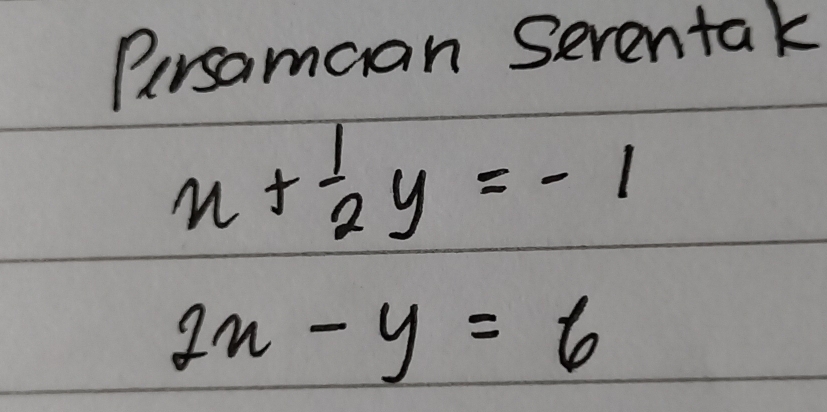 Persamaan Serentak
x + 1/2 y = - 1
2x - y = 6